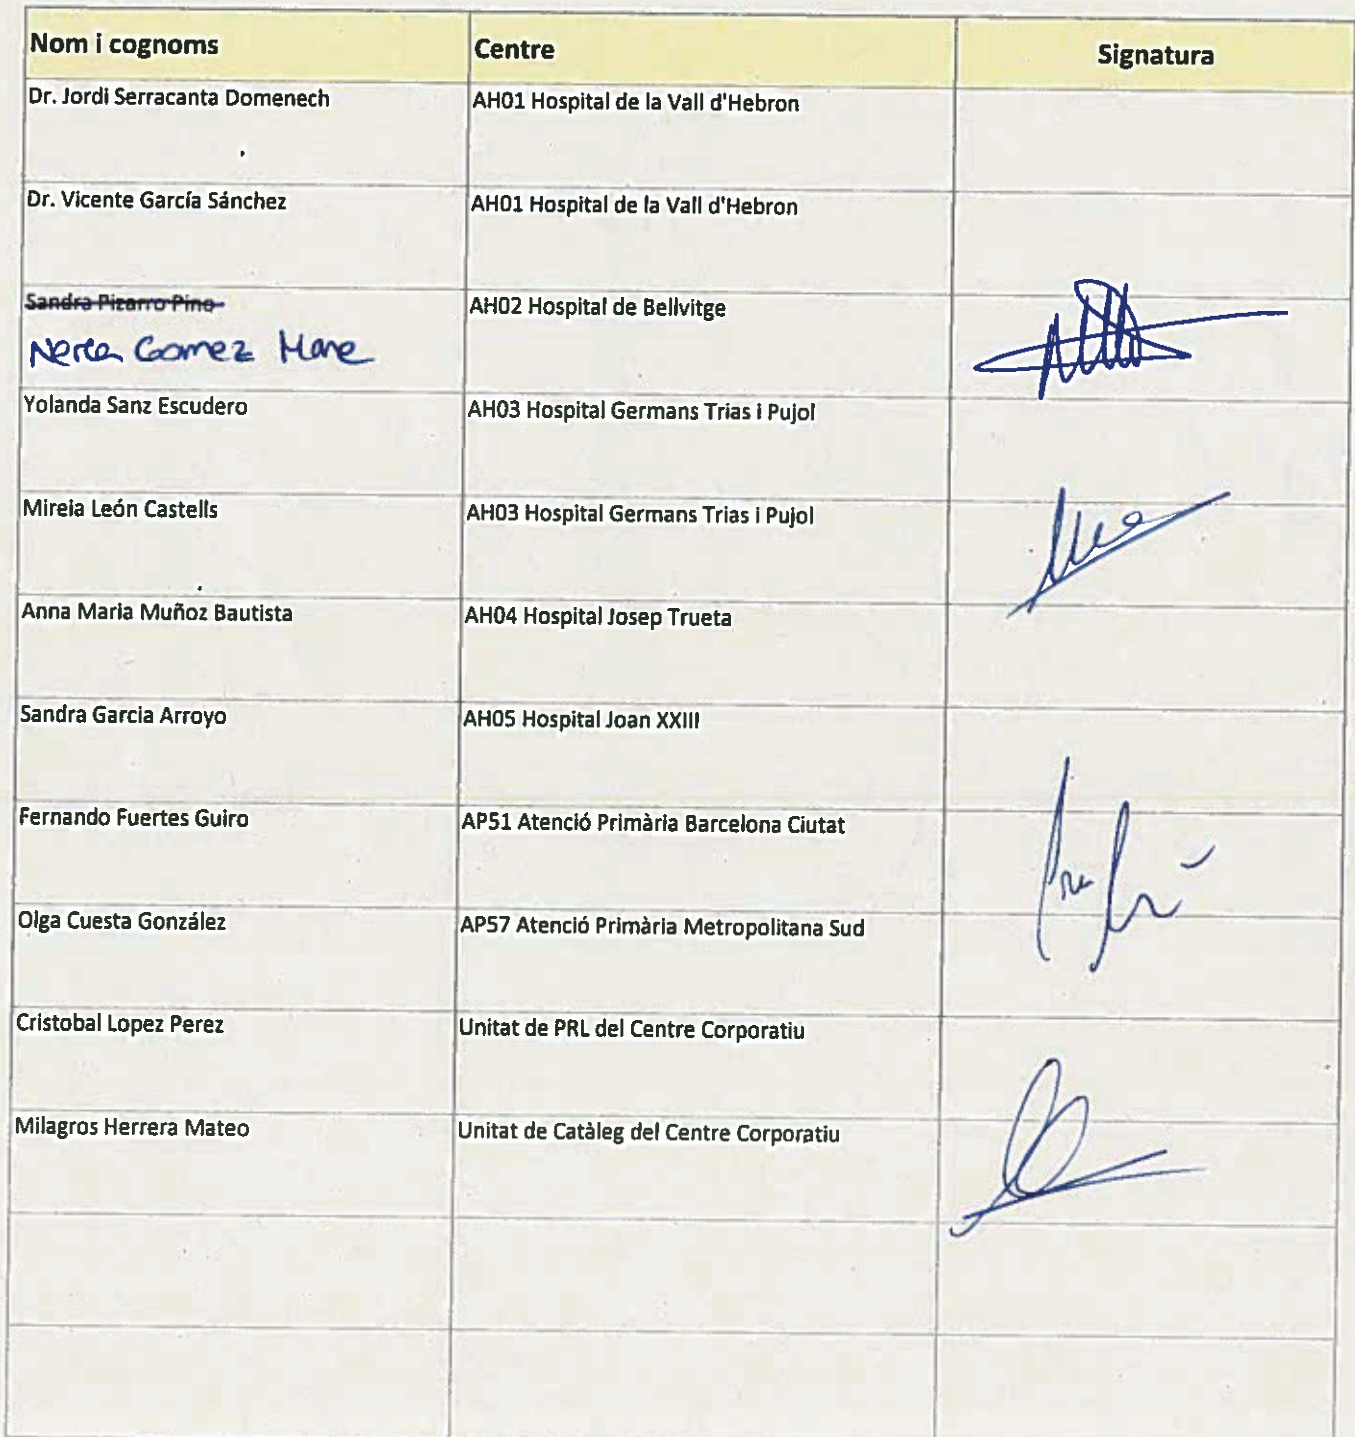 Nom i cognoms Centre Signatura
Dr. Jordi Serracanta Domenech AH01 Hospital de la Vall d'Hebron
Dr. Vicente García Sánchez AH01 Hospital de la Vall d'Hebron
Sandra Pizarro Pino AH02 Hospital de Bellvitge
Gomez
Yolanda Sanz Escudero AH03 Hospital Germans Trias i Pujol
Mireia León Castells AH03 Hospital Germans Trias i Pujol
Anna Maria Muñoz Bautista AH04 Hospital Josep Trueta
Sandra Garcia Arroyo AH05 Hospital Joan XXIII
Fernando Fuertes Guiro AP51 Atenció Primària Barcelona Ciutat
Olga Cuesta González AP57 Atenció Primària Metropolitana Sud
Cristobal Lopez Perez Unitat de PRL del Centre Corporatiu
Milagros Herrera Mateo Unitat de Catàleg del Centre Corporatiu